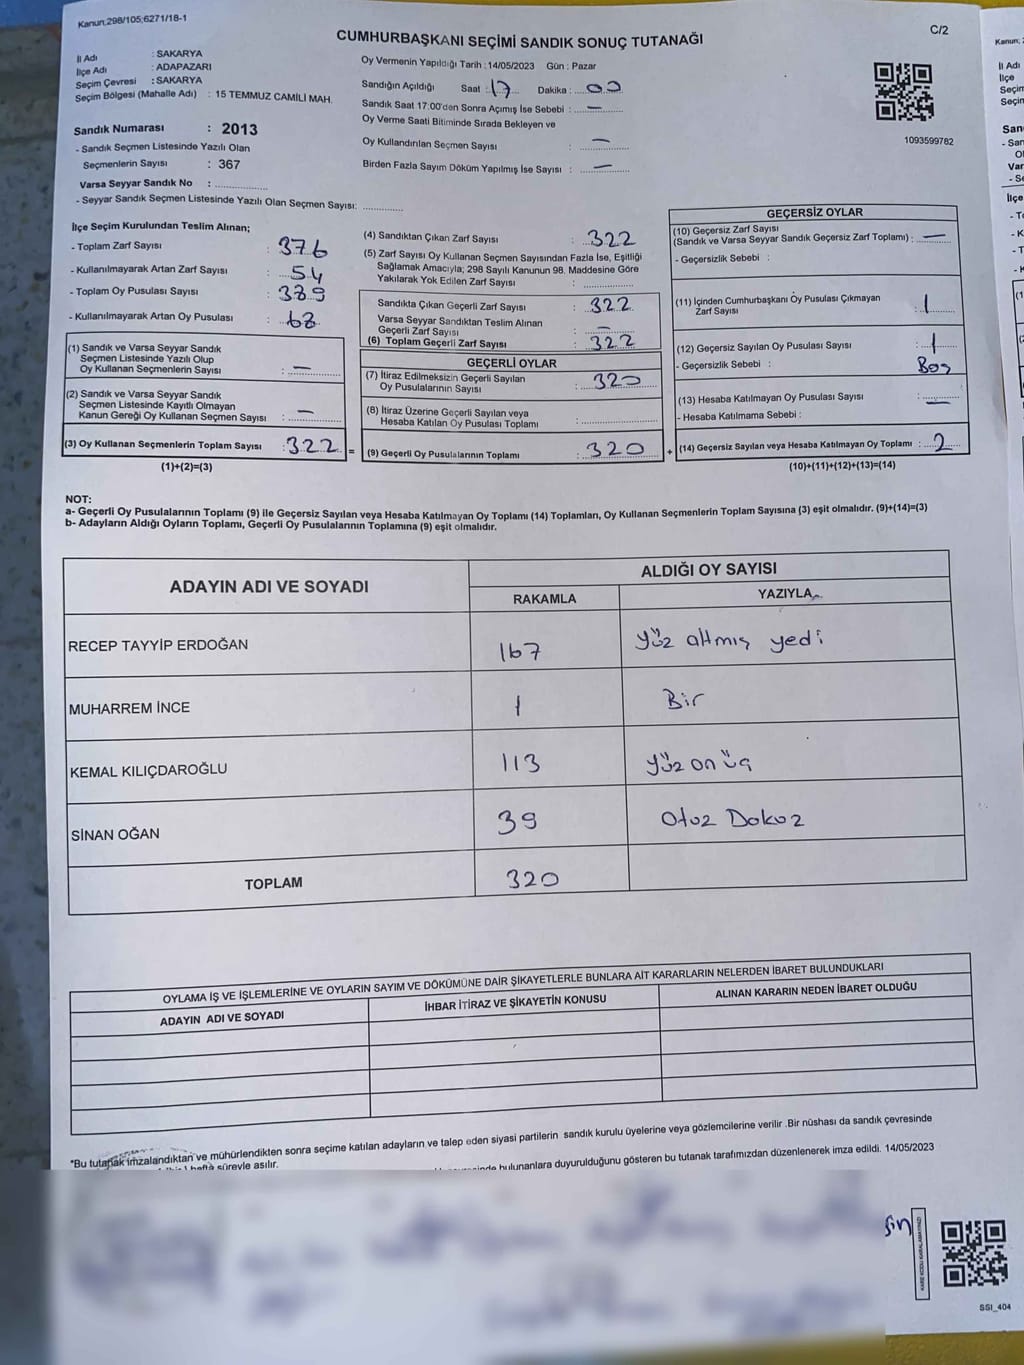 Kanun,298/105,6271/18-1
C/2
CUMHURBAŞKANI SEÇİMİ SANDIK SONUÇ TUTANAĞI
İl Adı : SAKARYA
İlçe Adı : ADAPAZARI
Seçim Çevresi : SAKARYA
Seçim Bölgesi (Mahalle Adı) : 15 TEMMUZ CAMİLİ MAH.
Oy Vermenin Yapıldığı Tarih : 14/05/2023 Gün : Pazar
Sandığın Açıldığı Saat : 17 Dakika : 00
Sandık Saat 17:00'den Sonra Açımış İse Sebebi : —
Oy Verme Saati Bitiminde Sırada Bekleyen ve
Oy Kullandırılan Seçmen Sayısı : —
Birden Fazla Sayım Döküm Yapılmış İse Sayısı : —
1093599782
Sandık Numarası : 2013
- Sandık Seçmen Listesinde Yazılı Olan
Seçmenlerin Sayısı : 367
Varsa Seyyar Sandık No :
- Seyyar Sandık Seçmen Listesinde Yazılı Olan Seçmen Sayısı:
İlçe Seçim Kurulundan Teslim Alınan;
- Toplam Zarf Sayısı : 376
- Kullanılmayarak Artan Zarf Sayısı : 54
- Toplam Oy Pusulası Sayısı : 389
- Kullanılmayarak Artan Oy Pusulası : 68
(1) Sandık ve Varsa Seyyar Sandık
Seçmen Listesinde Yazılı Olup
Oy Kullanan Seçmenlerin Sayısı : —
(2) Sandık ve Varsa Seyyar Sandık
Seçmen Listesinde Kayıtlı Olmayan
Kanun Gereği Oy Kullanan Seçmen Sayısı : —
(3) Oy Kullanan Seçmenlerin Toplam Sayısı : 322
(1)+(2)=(3)
(4) Sandıktan Çıkan Zarf Sayısı : 322
(5) Zarf Sayısı Oy Kullanan Seçmen Sayısından Fazla İse, Eşitliği
Sağlamak Amacıyla; 298 Sayılı Kanunun 98. Maddesine Göre
Yakılarak Yok Edilen Zarf Sayısı :
Sandıkta Çıkan Geçerli Zarf Sayısı : 322
Varsa Seyyar Sandıktan Teslim Alınan
Geçerli Zarf Sayısı : —
(6) Toplam Geçerli Zarf Sayısı : 322
GEÇERLİ OYLAR
(7) İtiraz Edilmeksizin Geçerli Sayılan
Oy Pusulalarının Sayısı : 320
(8) İtiraz Üzerine Geçerli Sayılan veya
Hesaba Katılan Oy Pusulası Toplamı :
= (9) Geçerli Oy Pusulalarının Toplamı : 320 +
GEÇERSİZ OYLAR
(10) Geçersiz Zarf Sayısı
(Sandık ve Varsa Seyyar Sandık Geçersiz Zarf Toplamı) : —
- Geçersizlik Sebebi :
(11) İçinden Cumhurbaşkanı Oy Pusulası Çıkmayan
Zarf Sayısı : 1
(12) Geçersiz Sayılan Oy Pusulası Sayısı : 1
- Geçersizlik Sebebi : Boş
(13) Hesaba Katılmayan Oy Pusulası Sayısı : —
- Hesaba Katılmama Sebebi :
(14) Geçersiz Sayılan veya Hesaba Katılmayan Oy Toplamı : 2
(10)+(11)+(12)+(13)=(14)
NOT:
a- Geçerli Oy Pusulalarının Toplamı (9) ile Geçersiz Sayılan veya Hesaba Katılmayan Oy Toplamı (14) Toplamları, Oy Kullanan Seçmenlerin Toplam Sayısına (3) eşit olmalıdır. (9)+(14)=(3)
b- Adayların Aldığı Oyların Toplamı, Geçerli Oy Pusulalarının Toplamına (9) eşit olmalıdır.
ADAYIN ADI VE SOYADI
ALDIĞI OY SAYISI
RAKAMLA YAZIYLA
RECEP TAYYİP ERDOĞAN 167 Yüz altmış yedi
MUHARREM İNCE 1 Bir
KEMAL KILIÇDAROĞLU 113 Yüz on üç
SİNAN OĞAN 39 Otuz Dokuz
TOPLAM 320
OYLAMA İŞ VE İŞLEMLERİNE VE OYLARIN SAYIM VE DÖKÜMÜNE DAİR ŞİKAYETLERLE BUNLARA AİT KARARLARIN NELERDEN İBARET BULUNDUKLARI
ADAYIN ADI VE SOYADI İHBAR İTİRAZ VE ŞİKAYETİN KONUSU ALINAN KARARIN NEDEN İBARET OLDUĞU
*Bu tutanak imzalandıktan ve mühürlendikten sonra seçime katılan adayların ve talep eden siyasi partilerin sandık kurulu üyelerine veya gözlemcilerine verilir .Bir nüshası da sandık çevresinde
hafta süreyle asılır.
bulunanlara duyurulduğunu gösteren bu tutanak tarafımızdan düzenlenerek imza edildi. 14/05/2023
KARE KODU KARALAMAYINIZ!
SSI_404
Kanun,
İl Adı
İlçe
Seçim